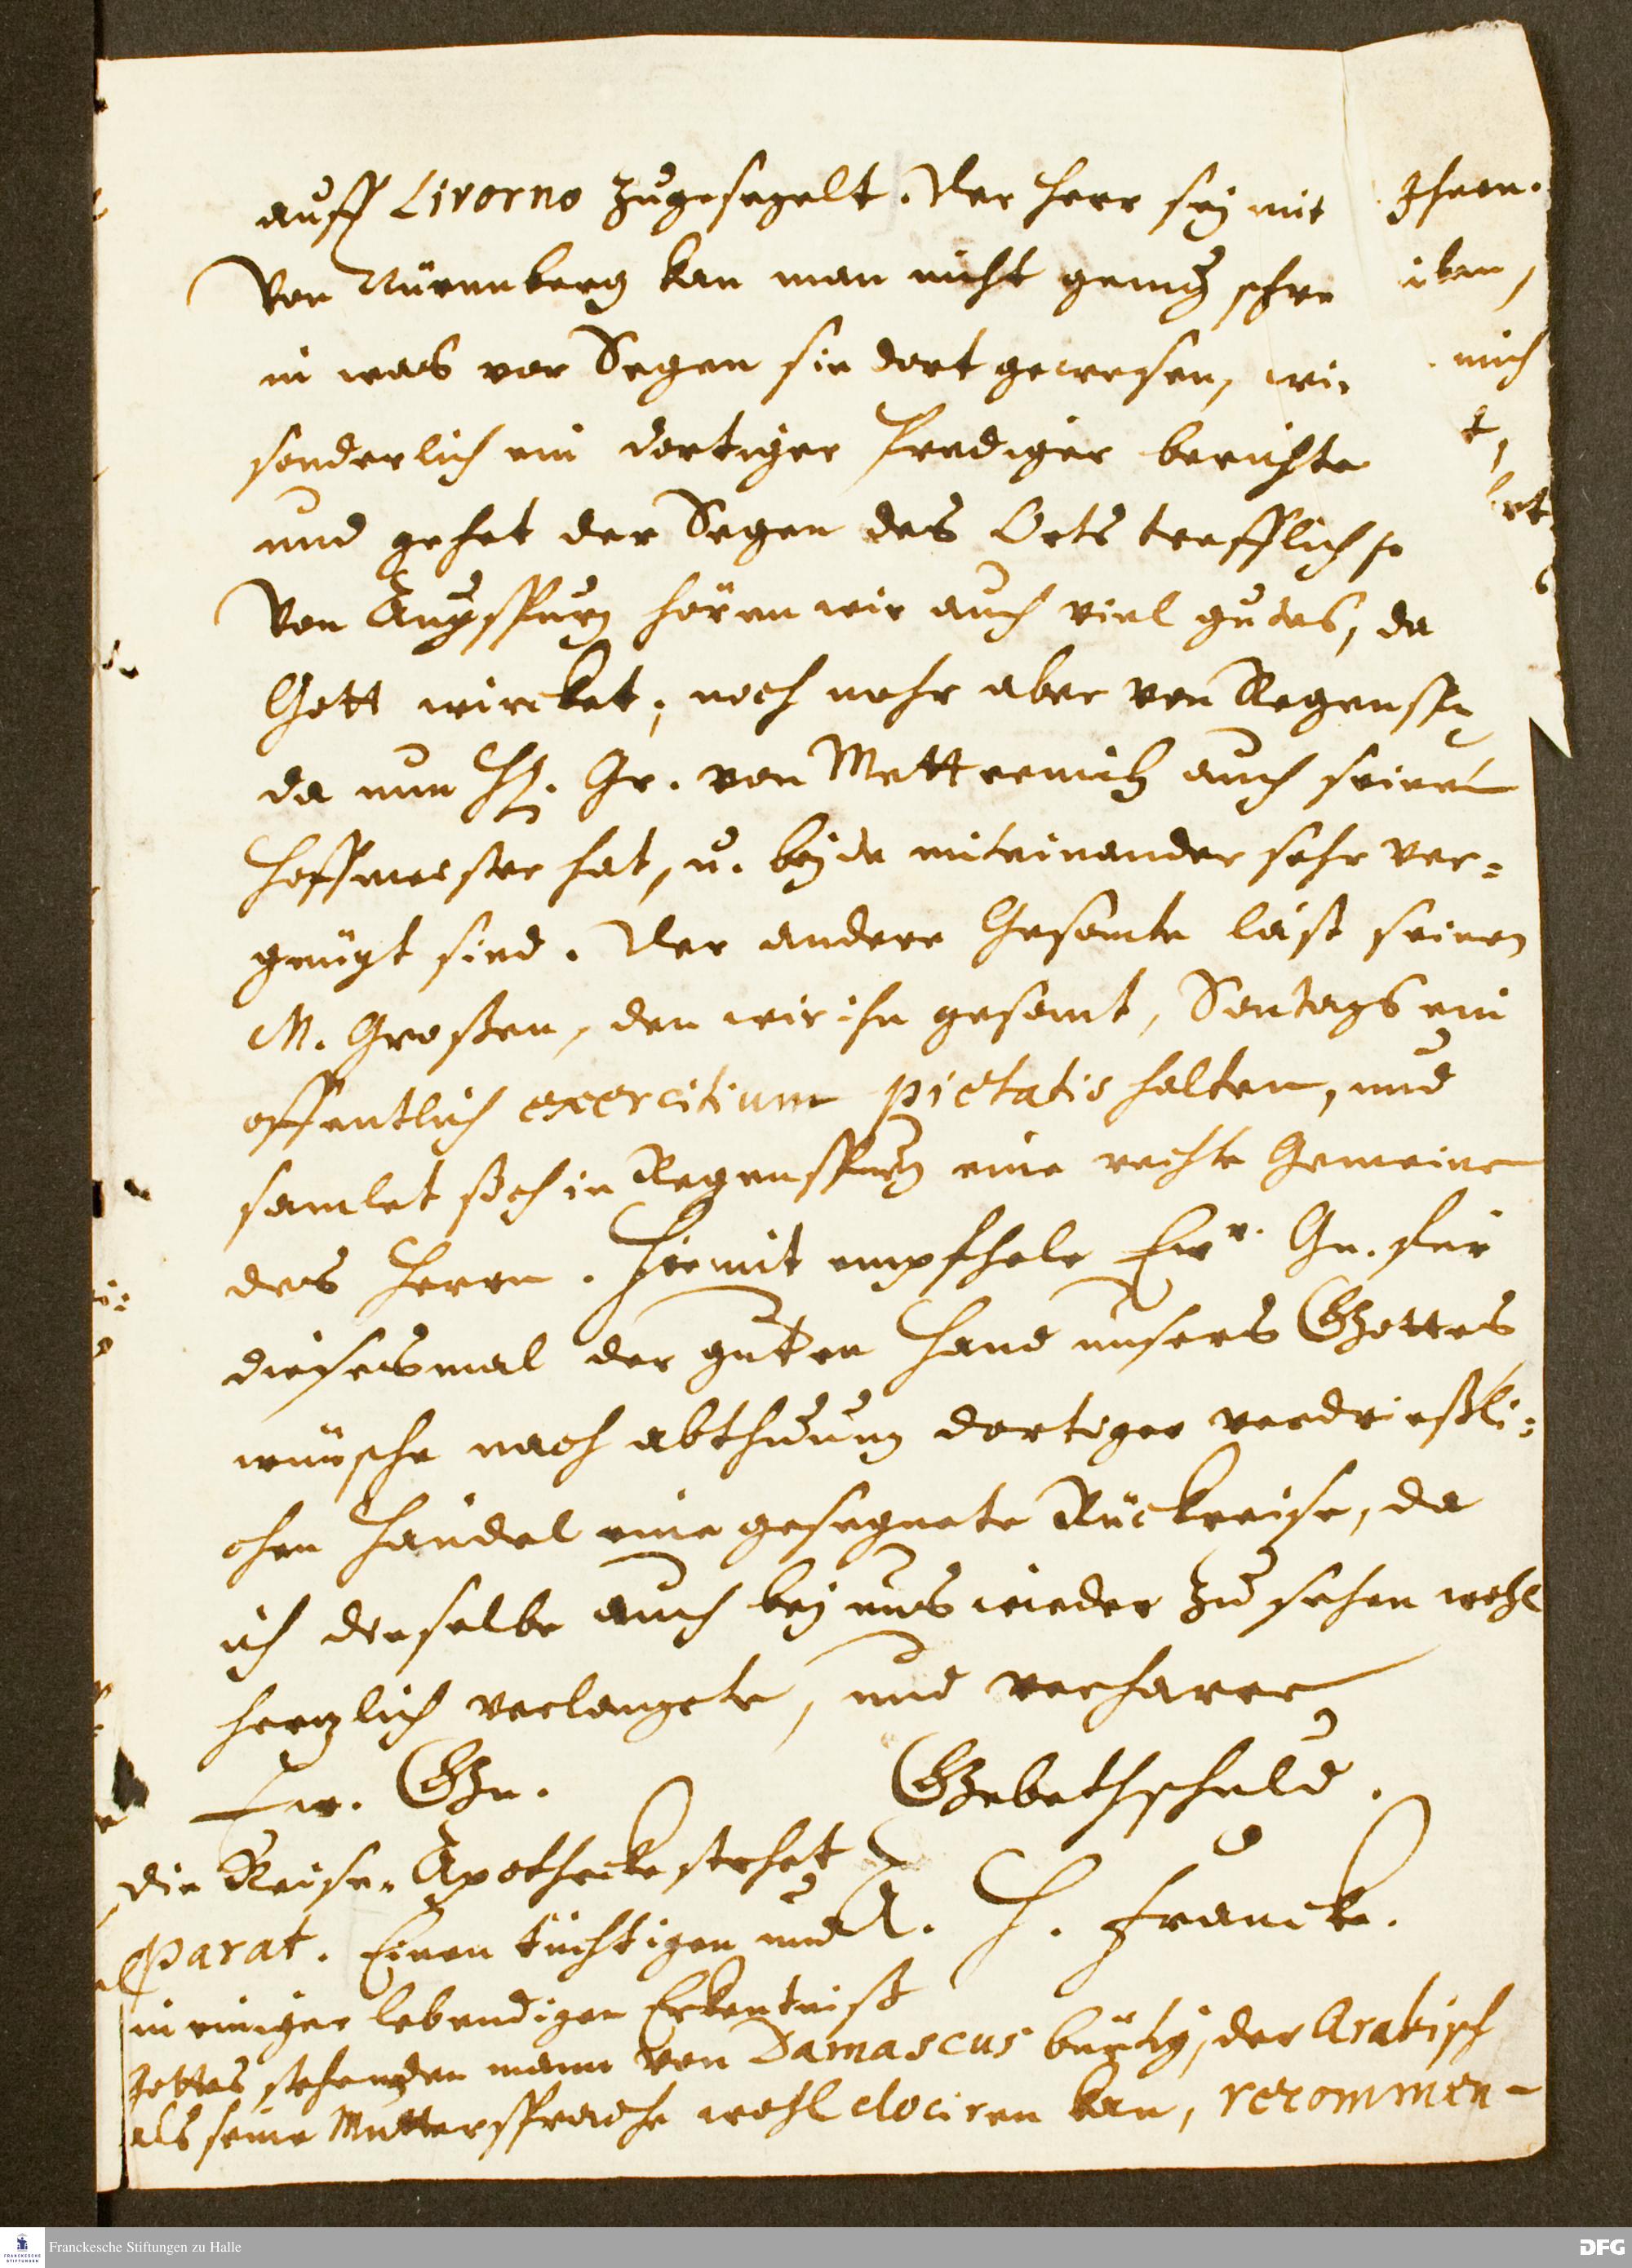 auff Livorno zugesegelt. Der Herr sey mit Ihnen.
Von Nürnberg kan man nicht genug schreiben,
in was vor Segen sie dort gewesen, wie mich
sonderlich ein dortiger Prediger berichtet,
und gehet der Segen des Orts trefflich fort
Von Augspurg hören wir auch viel gutes, da
Gott wircket; noch mehr aber von Regensp
da nun H. Gr. von Metternich auch seinen
Hoffmeister hat, u. beyde miteinander sehr ver-
gnügt sind. Der andere Gesante läst seinen
M. Großen, den wir ihn gesamt, Sontags ein
offentlich exercitium pietatis halten, und
samlet sich in Regenspurg eine rechte Gemeine
des Herrn. Hiemit empfehle Ewr. Gn. für
diesesmal der guten Hand unsers Gottes
wünsche nach abthuung dortiger verdrießli-
chen Händel eine gesegnete Rückreise, da
ich denselbe auch bey uns wieder zu sehen wohl
hertzlich verlangete, und verharre
Ew. Gn. Gebethschuld.
die Reise-Apothecke stehet
A. H. Francke.
parat. Einen tüchtigen und
in einiger lebendigen Erkentniß
Gottes stehenden mann von Damascus bürtig, der Arabisch
als seine Muttersprache wohl dociren kan, recommen-
Franckesche Stiftungen zu Halle
DFG